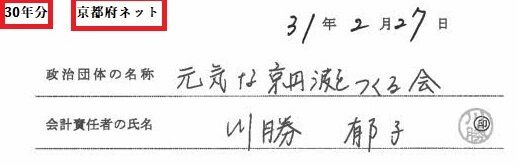 30年分 京都府ネット
31年2月27日
政治団体の名称 元気な京丹波をつくる会
会計責任者の氏名 川勝 郁子 印